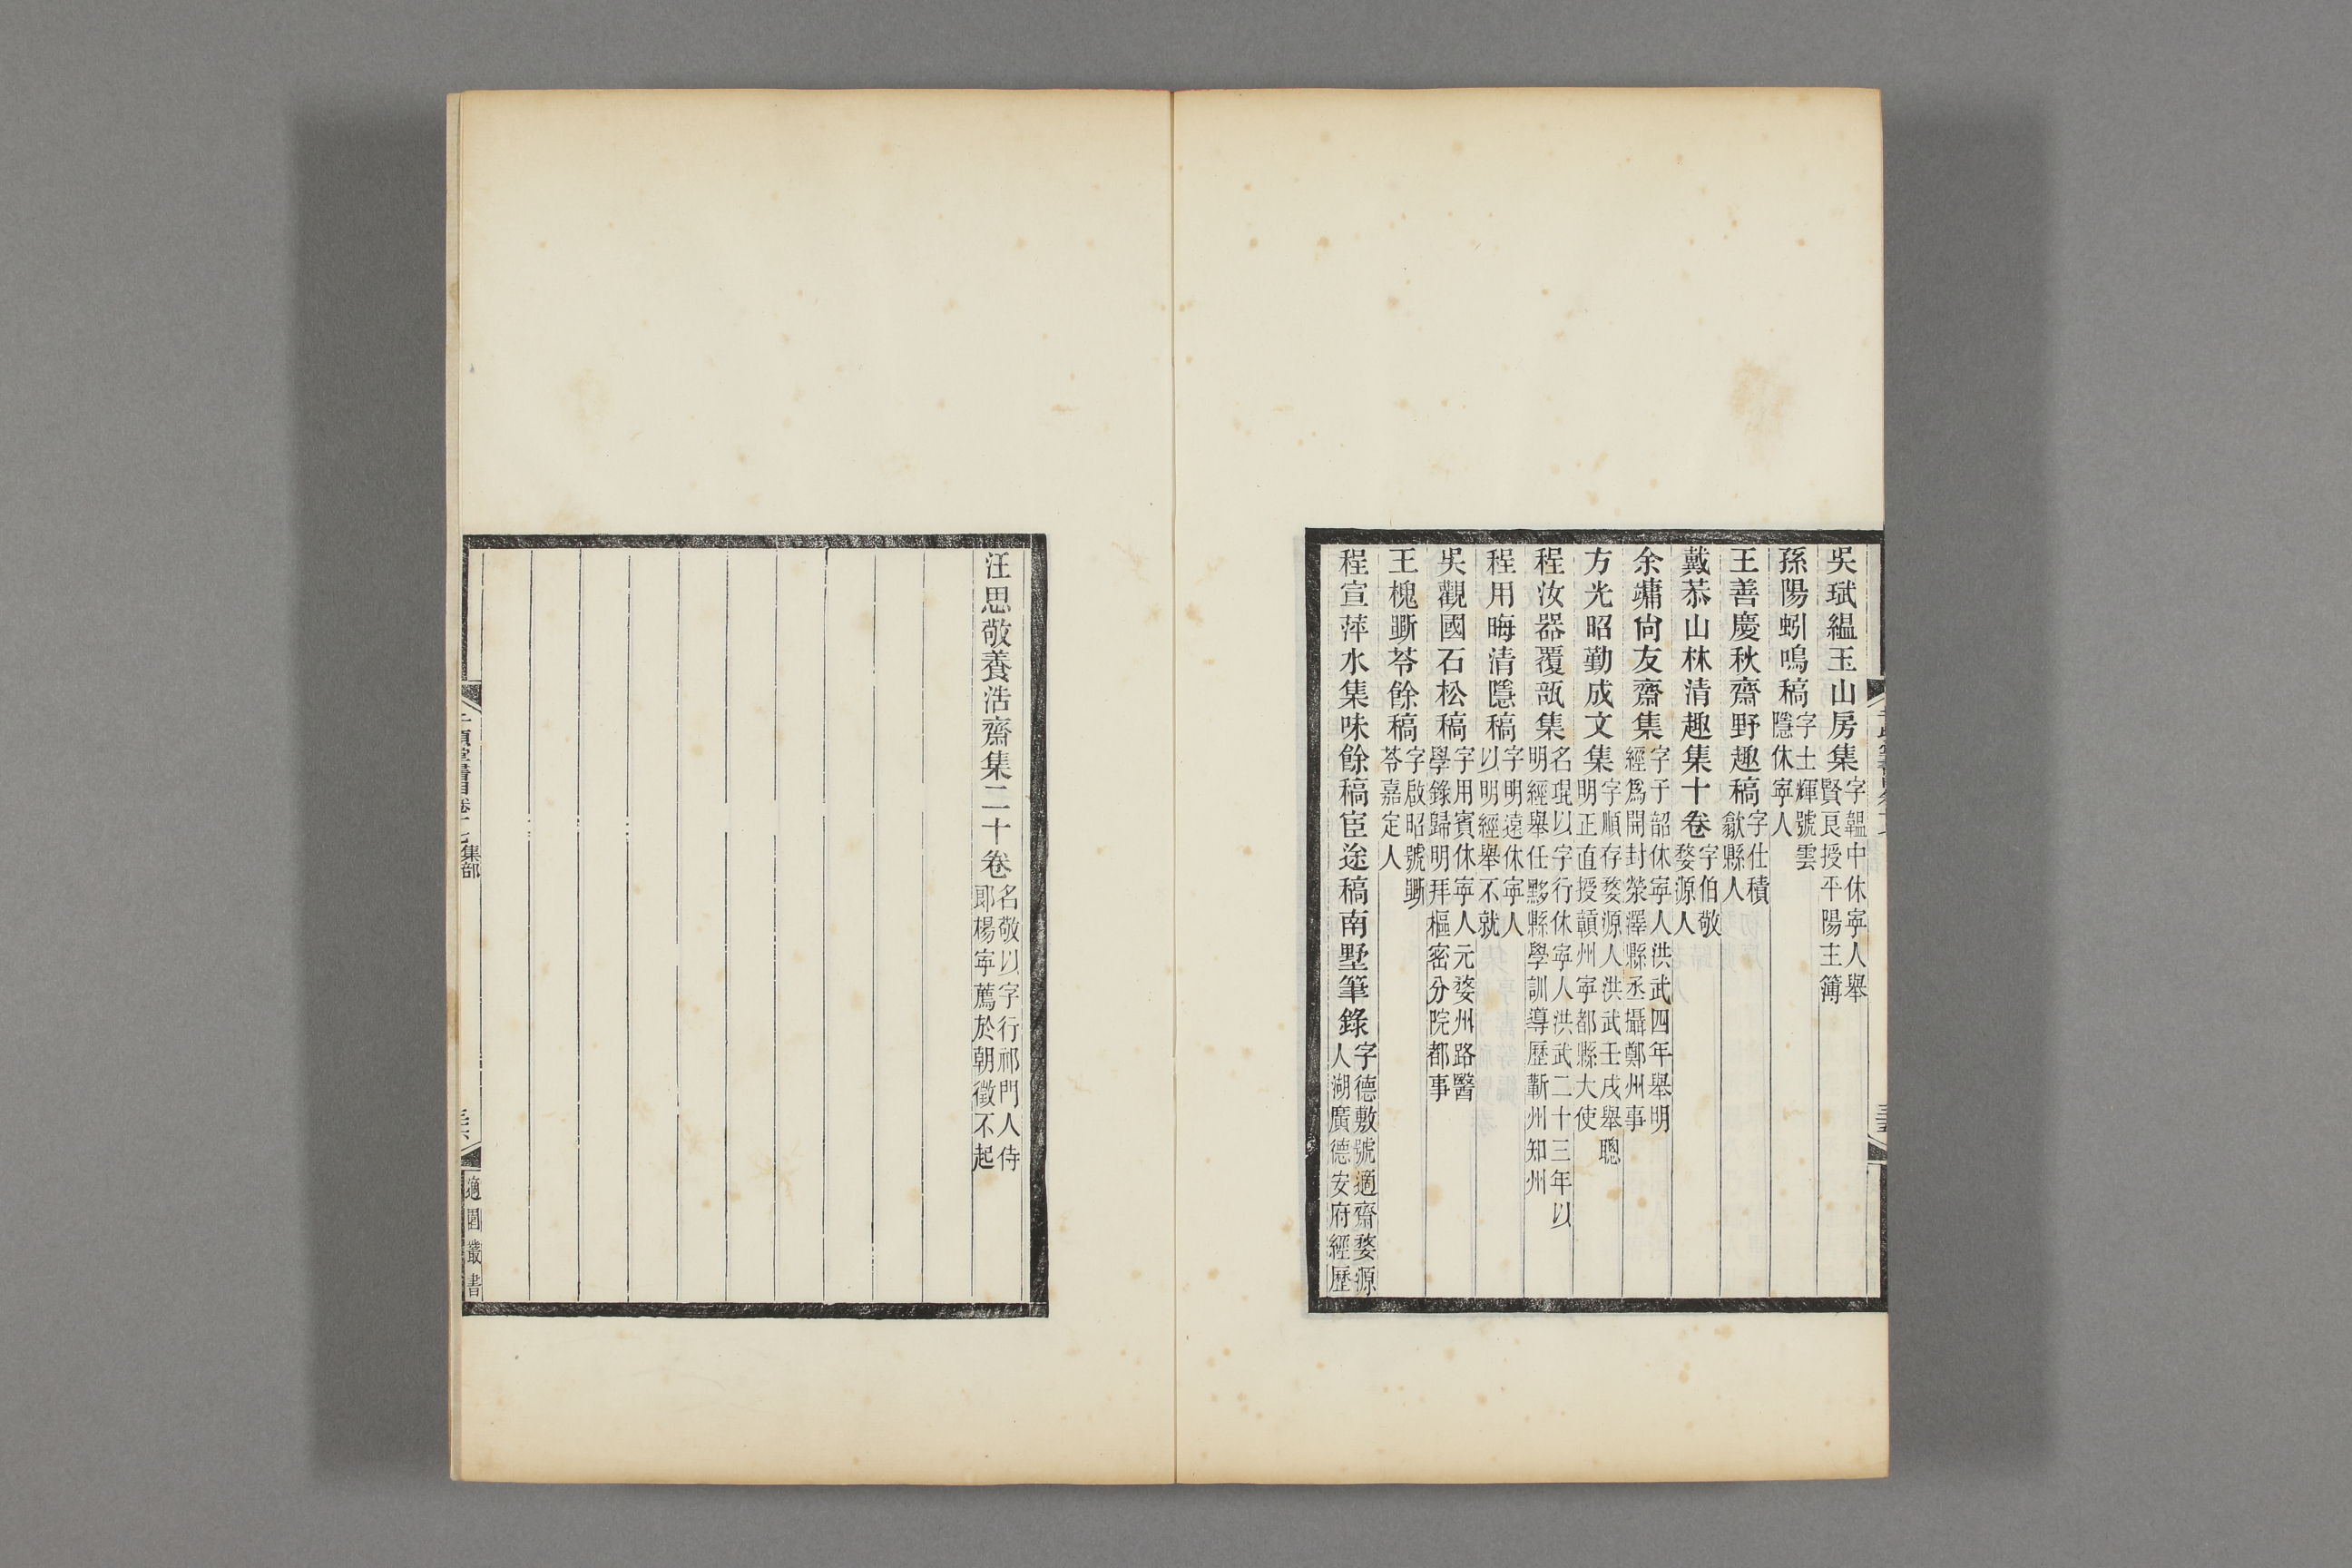 吳珷緼玉山房集字韞中休寧人舉賢良授平陽主簿
孫陽蚓鳴稿字士輝號雲隱休寧人
王善慶秋齋野趣稿字仕積歙縣人
戴恭山林清趣集十卷字伯敬婺源人
余𫏋尙友齋集字于韶休寧人洪武四年舉明經爲開封滎澤縣丞攝鄭州事
方光昭勤成文集字順存婺源人洪武壬戌舉聰明正直授贛州寧都縣大使
程汝器覆瓿集名琨以字行休寧人洪武二十三年以明經舉任黟縣學訓導歷蘄州知州
程用晦清隱稿字明遠休寧人以明經舉不就
吳觀國石松稿字用賓休寧人元婺州路醫學錄歸明拜樞密分院都事
王槐斸苓餘稿字啟昭號斸苓嘉定人
程宣萍水集味餘稿宦途稿南墅筆錄字德敷號適齋婺源人湖廣德安府經歷
三十五
汪思敬養浩齋集二十卷名敬以字行祁門人侍郎楊寧薦於朝徵不起
千頃堂書目卷十七集部
三十六
適園叢書